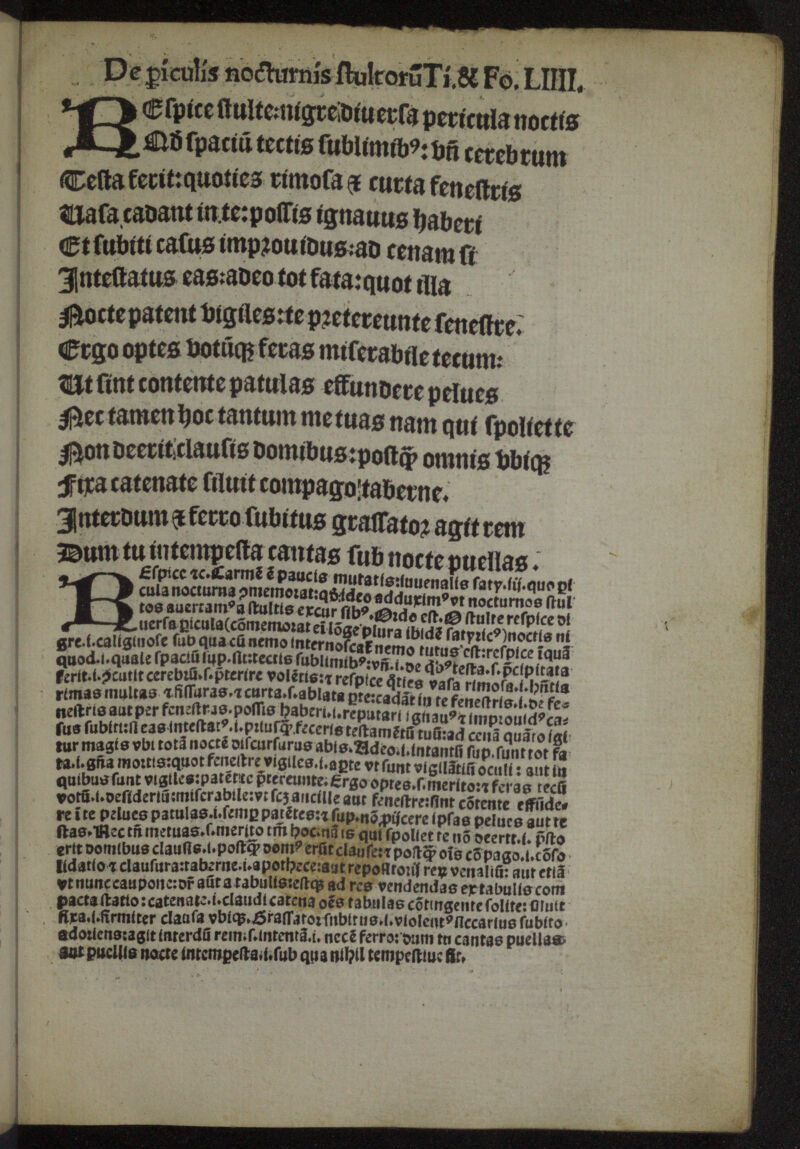 De ꝑiculis nocturnis stultorūTi.& Fo. LIIII.
REspice stulte:nigre:diuersa pericula noctis
Qd spaciū tectis sublimibꝰ: vñ cerebrum
Testa ferit:quoties rimosa ⁊ curta fenestris
Uasa cadant in.te:possis ignauus haberi
Et subiti casus improuidus:ad cenam si
Intestatus eas:adeo tot fata:quot illa
Nocte patent vigiles:te pretereunte fenestre.
Ergo optes votūqꝫ feras miserabile tecum:
Ut sint contente patulas effundere pelues
Nec tamen hoc tantum metuas nam qui spoliet te
Non deerit:clausis domibus:postqꝫ omnis vbiqꝫ
Fixa catenate siluit compago:taberne.
Interdum ⁊ ferro subitus grassator agit rem
Dum tu intempesta cantas sub nocte puellas.
REspice ⁊c. Carmē ē paucis mutatis:iuuenalis saty.iij.quo pi
cula nocturna ꝯmemorat:qd ideo adduximꝰvt nocturnos stul
tos auertamꝰa stultis excur sibꝰ.Ordo est.O stulte respice di
uersa ꝑicula(cōmemorat ei lōge plura ibidē satyricꝰ)noctis ni
gre.i.caliginose sub qua cū nemo internoscat nemo tutus est:respice īquā
quod.i.quale spaciū sup.sit:tectis sublimibꝰ:vñ.i.de qbꝰtesta.s.ꝑcipitata
ferit.i.ꝑcutit cerebrū.s.pterire volētis:⁊ respice qties vasa rimosa.i.hñtia
rimas multas ⁊ fissuras.⁊ curta.s.ablata pte:cadāt in te fenestris.i.de fe⸗
nestris aut per fenestras.possis haberi.i.reputari ignauꝰ⁊ improuidꝰca⸗
sus subiti:si eas intestatꝰ.i.priusqꝫ.feceris testamētū tuū:ad cenā quāto igi
tur magis vbi totā noctē discursurus abis.Adeo.i.intantū sup.sunt tot fa
ta.i.gña mortis:quot fenestre vigiles.i.apte vt sunt vigilātiū oculi: aut in
quibus sunt vigiles:patētte ptereunte. Ergo optes.s.merito:⁊ feras tecū
votū.i.desideriū:miserabile:vt scꝫ ancille aut fenestre:sint cōtente effūde⸗
re ī te pelues patulas.i.semꝑ patētes:⁊ sup.nō ꝓijcere ipsas pelues aut te
stas.Nec tñ metuas.s.merito tm̄ hoc.nā is qui spoliet te nō deerit.i. ꝓsto
erit domibus clausis.i.postqꝫ domꝰerūt clause:⁊ postqꝫ oīs cōpago.i.cōso
lidatio ⁊ clausura:taberne.i.apothece:aut repositorij reꝝ venaliū: aut etiā
vt nunc caupone:dr̄ aūt a tabulis:estqꝫ ad res vendendas ex tabulis com
pacta statio:catenate.i.claudi catena oēs tabulas cōtingente solite: siluit
fixa.i.firmiter clausa vbiqꝫ.Grassator subitus.i.violentꝰsiccarius subito
adoriens:agit interdū rem:s.intentā.i. necē ferro:dum tu cantas puellas
aut puellis nocte intempesta.i.sub qua nihil tempestiue fit.